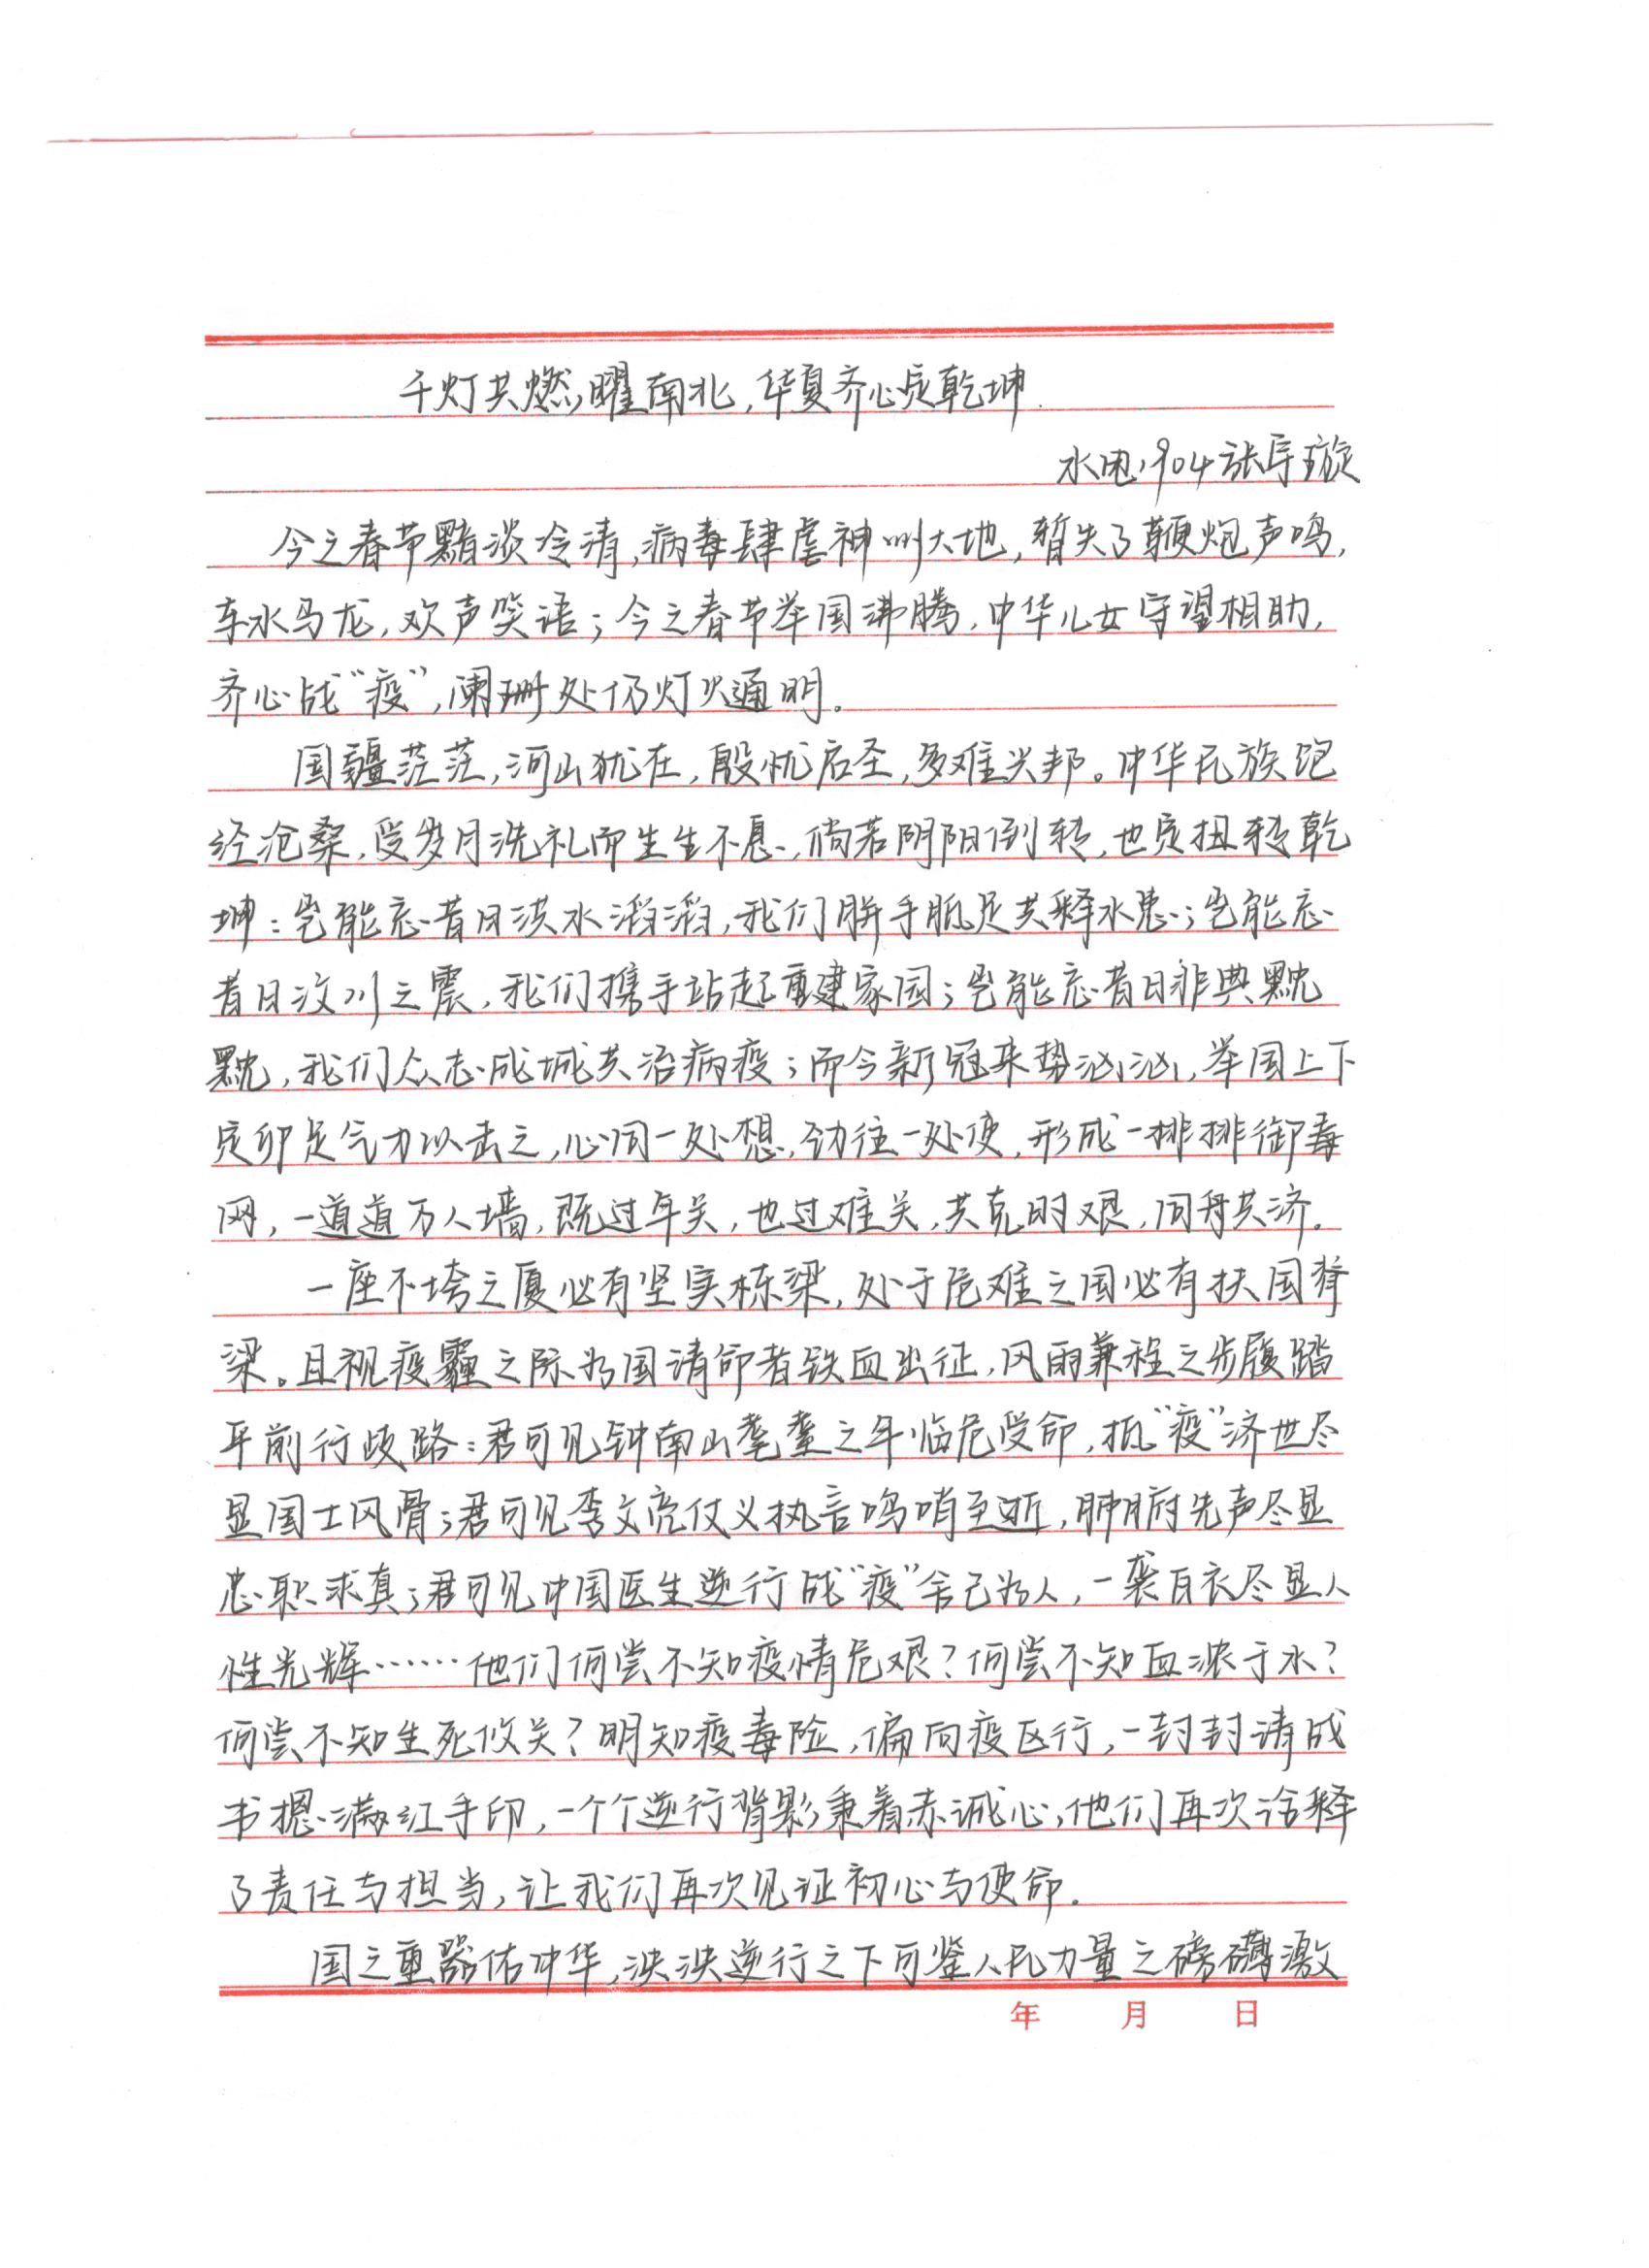 千灯共燃曜南北，华夏齐心定乾坤
水电1904张辰璇
今之春节黯淡冷清，病毒肆虐神州大地，暂失了鞭炮声鸣，
车水马龙，欢声笑语；今之春节举国沸腾，中华儿女守望相助，
齐心战“疫”，阑珊处仍灯火通明。
国疆茫茫，河山犹在，殷忧启圣，多难兴邦。中华民族饱
经沧桑，受岁月洗礼而生生不息，倘若阴阳倒转，也定扭转乾
坤：岂能忘昔日洪水滔滔，我们胼手胝足共释水患；岂能忘
昔日汶川之震，我们携手站起重建家园；岂能忘昔日非典黩
黩，我们众志成城共治病疫；而今新冠来势汹汹，举国上下
定卯足气力以击之，心同一处想，劲往一处使，形成一排排御毒
网，一道道万人墙，既过年关，也过难关，共克时艰，同舟共济。
一座不垮之厦必有坚实栋梁，处于危难之国必有扶国脊
梁。且视疫霾之际为国请命者铁血出征，风雨兼程之步履踏
平前行歧路：君可见钟南山耄耋之年临危受命，抵“疫”济世尽
显国士风骨；君可见李文亮仗义执言鸣哨至逝，肺腑先声尽显
忠职求真；君可见中国医生逆行战“疫”舍己为人，一袭白衣尽显人
性光辉……他们何尝不知疫情危艰？何尝不知血浓于水？
何尝不知生死攸关？明知疫毒险，偏向疫区行，一封封请战
书摁满红手印，一个个逆行背影秉着赤诚心，他们再次诠释
了责任与担当，让我们再次见证初心与使命。
国之重器佑中华，泱泱逆行之下可鉴人民力量之磅礴激
年 月 日